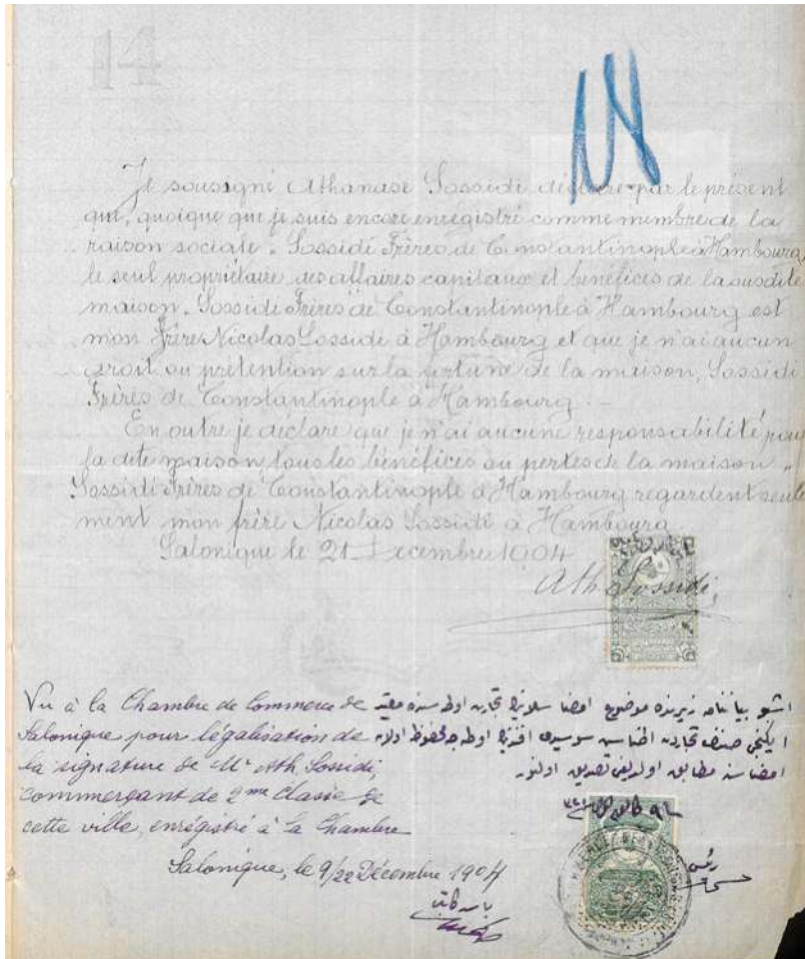 Je sousigné Athanase Sossidi déclare par le présent
que, quoique que je suis encore enrégistré comme membre de la
raison sociale „ Sossidi Frères de Constantinople à Hambourg,
le seul propriétaire des affaires capitaux et bénéfices de la susdite
maison „ Sossidi Frères de Constantinople à Hambourg est
mon frère Nicolas Sossidi à Hambourg et que je n'ai aucun
droit ou prétention sur la fortune de la maison „ Sossidi
Frères de Constantinople à Hambourg : —
En outre je déclare que je n'ai aucune responsabilité pour
la dite maison, tous les bénéfices ou pertes de la maison „
Sossidi Frères de Constantinople à Hambourg regardent seule
ment mon frère Nicolas Sossidi à Hambourg
Salonique le 21 Decembre 1904
Ath Sossidi
Vu à la Chambre de Commerce de
Salonique pour légalisation de
la signature de Mr Ath. Sossidi,
commerçant de 2me Classe de
cette ville, enrégistré à la Chambre
Salonique, le 9/22 Décembre 1904
اشبو بياننامه زيرنده موضوع امضا سلانيك تجارت اوطه سنده مقيد
ايكنجى صنف تجاردن اطناس سوسيدى افندينك اوطه جه محفوظ اولان
امضاسنه مطابق اولديغى تصديق اولنور
رئيس
باش كاتب